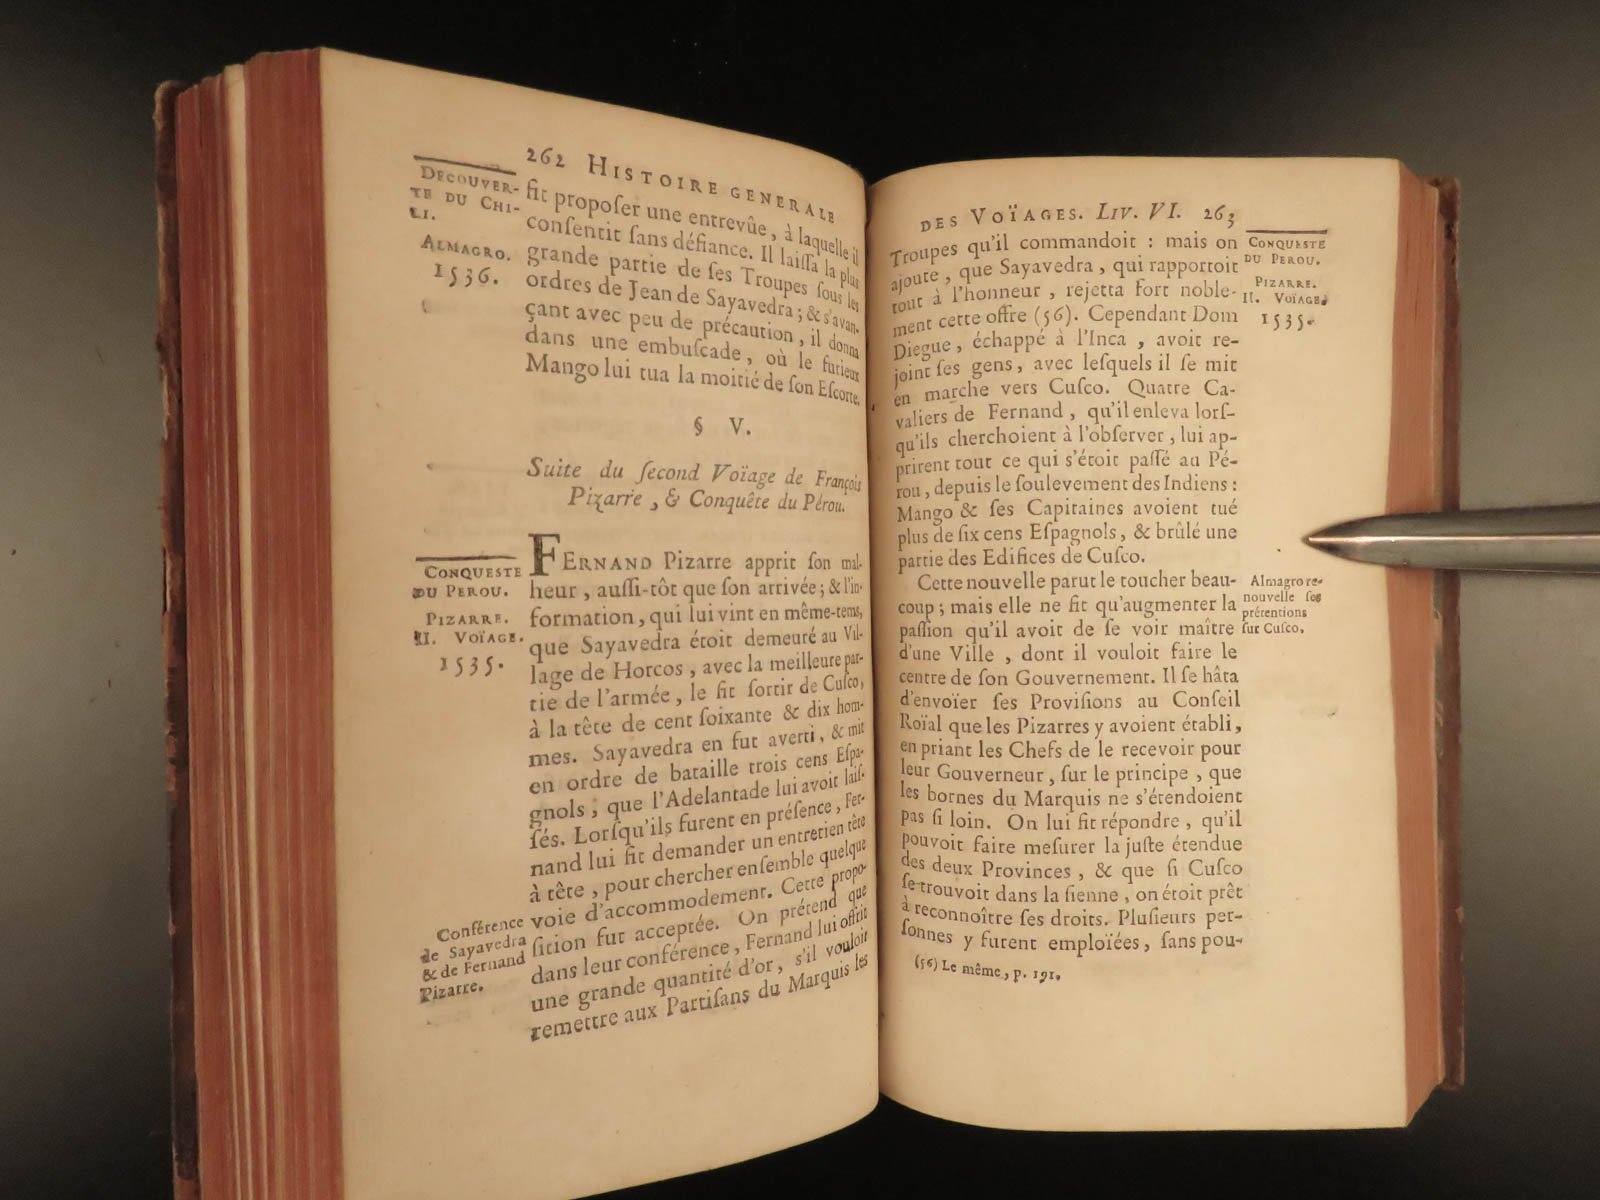 262 HISTOIRE GENERALE
DECOUVER-
TE DU CHI-
LI.
ALMAGRO.
1536.
fit propoſer une entrevûe, à laquelle il
conſentit ſans défiance. Il laiſſa la plus
grande partie de ſes Troupes ſous les
ordres de Jean de Sayavedra ; & s'avan-
çant avec peu de précaution, il donna
dans une embuſcade, où le furieux
Mango lui tua la moitié de ſon Eſcorte.
§ V.
Suite du ſecond Voïage de François
Pizarre, & Conquête du Pérou.
CONQUESTE
DU PEROU.
PIZARRE.
II. VOÏAGE.
1535.
FERNAND Pizarre apprit ſon mal-
heur, auſſi-tôt que ſon arrivée ; & l'in-
formation, qui lui vint en même-tems,
que Sayavedra étoit demeuré au Vil-
lage de Horcos, avec la meilleure par-
tie de l'armée, le fit ſortir de Cuſco,
à la tête de cent ſoixante & dix hom-
mes. Sayavedra en fut averti, & mit
en ordre de bataille trois cens Eſpa-
gnols, que l'Adelantade lui avoit laiſ-
ſés. Lorſqu'ils furent en préſence, Fer-
nand lui fit demander un entretien tête
à tête, pour chercher enſemble quelque
voie d'accommodement. Cette propo-
ſition fut acceptée. On prétend que
dans leur conférence, Fernand lui offrit
une grande quantité d'or, s'il vouloit
remettre aux Partiſans du Marquis les
Conférence
de Sayavedra
& de Fernand
Pizarre.
DES VOÏAGES. LIV. VI. 263
Troupes qu'il commandoit : mais on
ajoute, que Sayavedra, qui rapportoit
tout à l'honneur, rejetta fort noble-
ment cette offre (56). Cependant Dom
Diegue, échappé à l'Inca, avoit re-
joint ſes gens, avec leſquels il ſe mit
en marche vers Cuſco. Quatre Ca-
valiers de Fernand, qu'il enleva lorſ-
qu'ils cherchoient à l'obſerver, lui ap-
prirent tout ce qui s'étoit paſſé au Pé-
rou, depuis le ſoulevement des Indiens :
Mango & ſes Capitaines avoient tué
plus de ſix cens Eſpagnols, & brûlé une
partie des Edifices de Cuſco.
CONQUESTE
DU PEROU.
PIZARRE.
II. VOÏAGE.
1535.
Cette nouvelle parut le toucher beau-
coup ; mais elle ne fit qu'augmenter la
paſſion qu'il avoit de ſe voir maître
d'une Ville, dont il vouloit faire le
centre de ſon Gouvernement. Il ſe hâta
d'envoïer ſes Proviſions au Conſeil
Roïal que les Pizarres y avoient établi,
en priant les Chefs de le recevoir pour
leur Gouverneur, ſur le principe, que
les bornes du Marquis ne s'étendoient
pas ſi loin. On lui fit répondre, qu'il
pouvoit faire meſurer la juſte étendue
des deux Provinces, & que ſi Cuſco
ſe trouvoit dans la ſienne, on étoit prêt
à reconnoître ſes droits. Pluſieurs per-
ſonnes y furent emploïées, ſans pou-
Almagro re-
nouvelle ſes
prétentions
ſur Cuſco.
(56) Le même, p. 191.